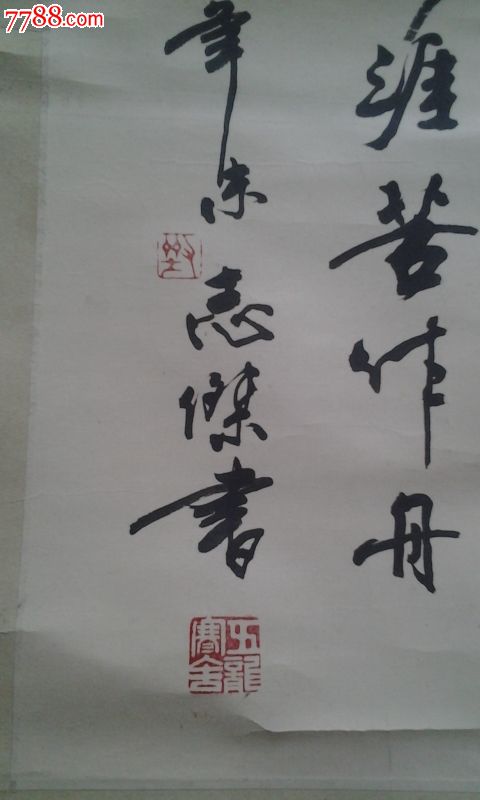 7788.com
涯苦作舟
年末志傑書
五龍寒舍